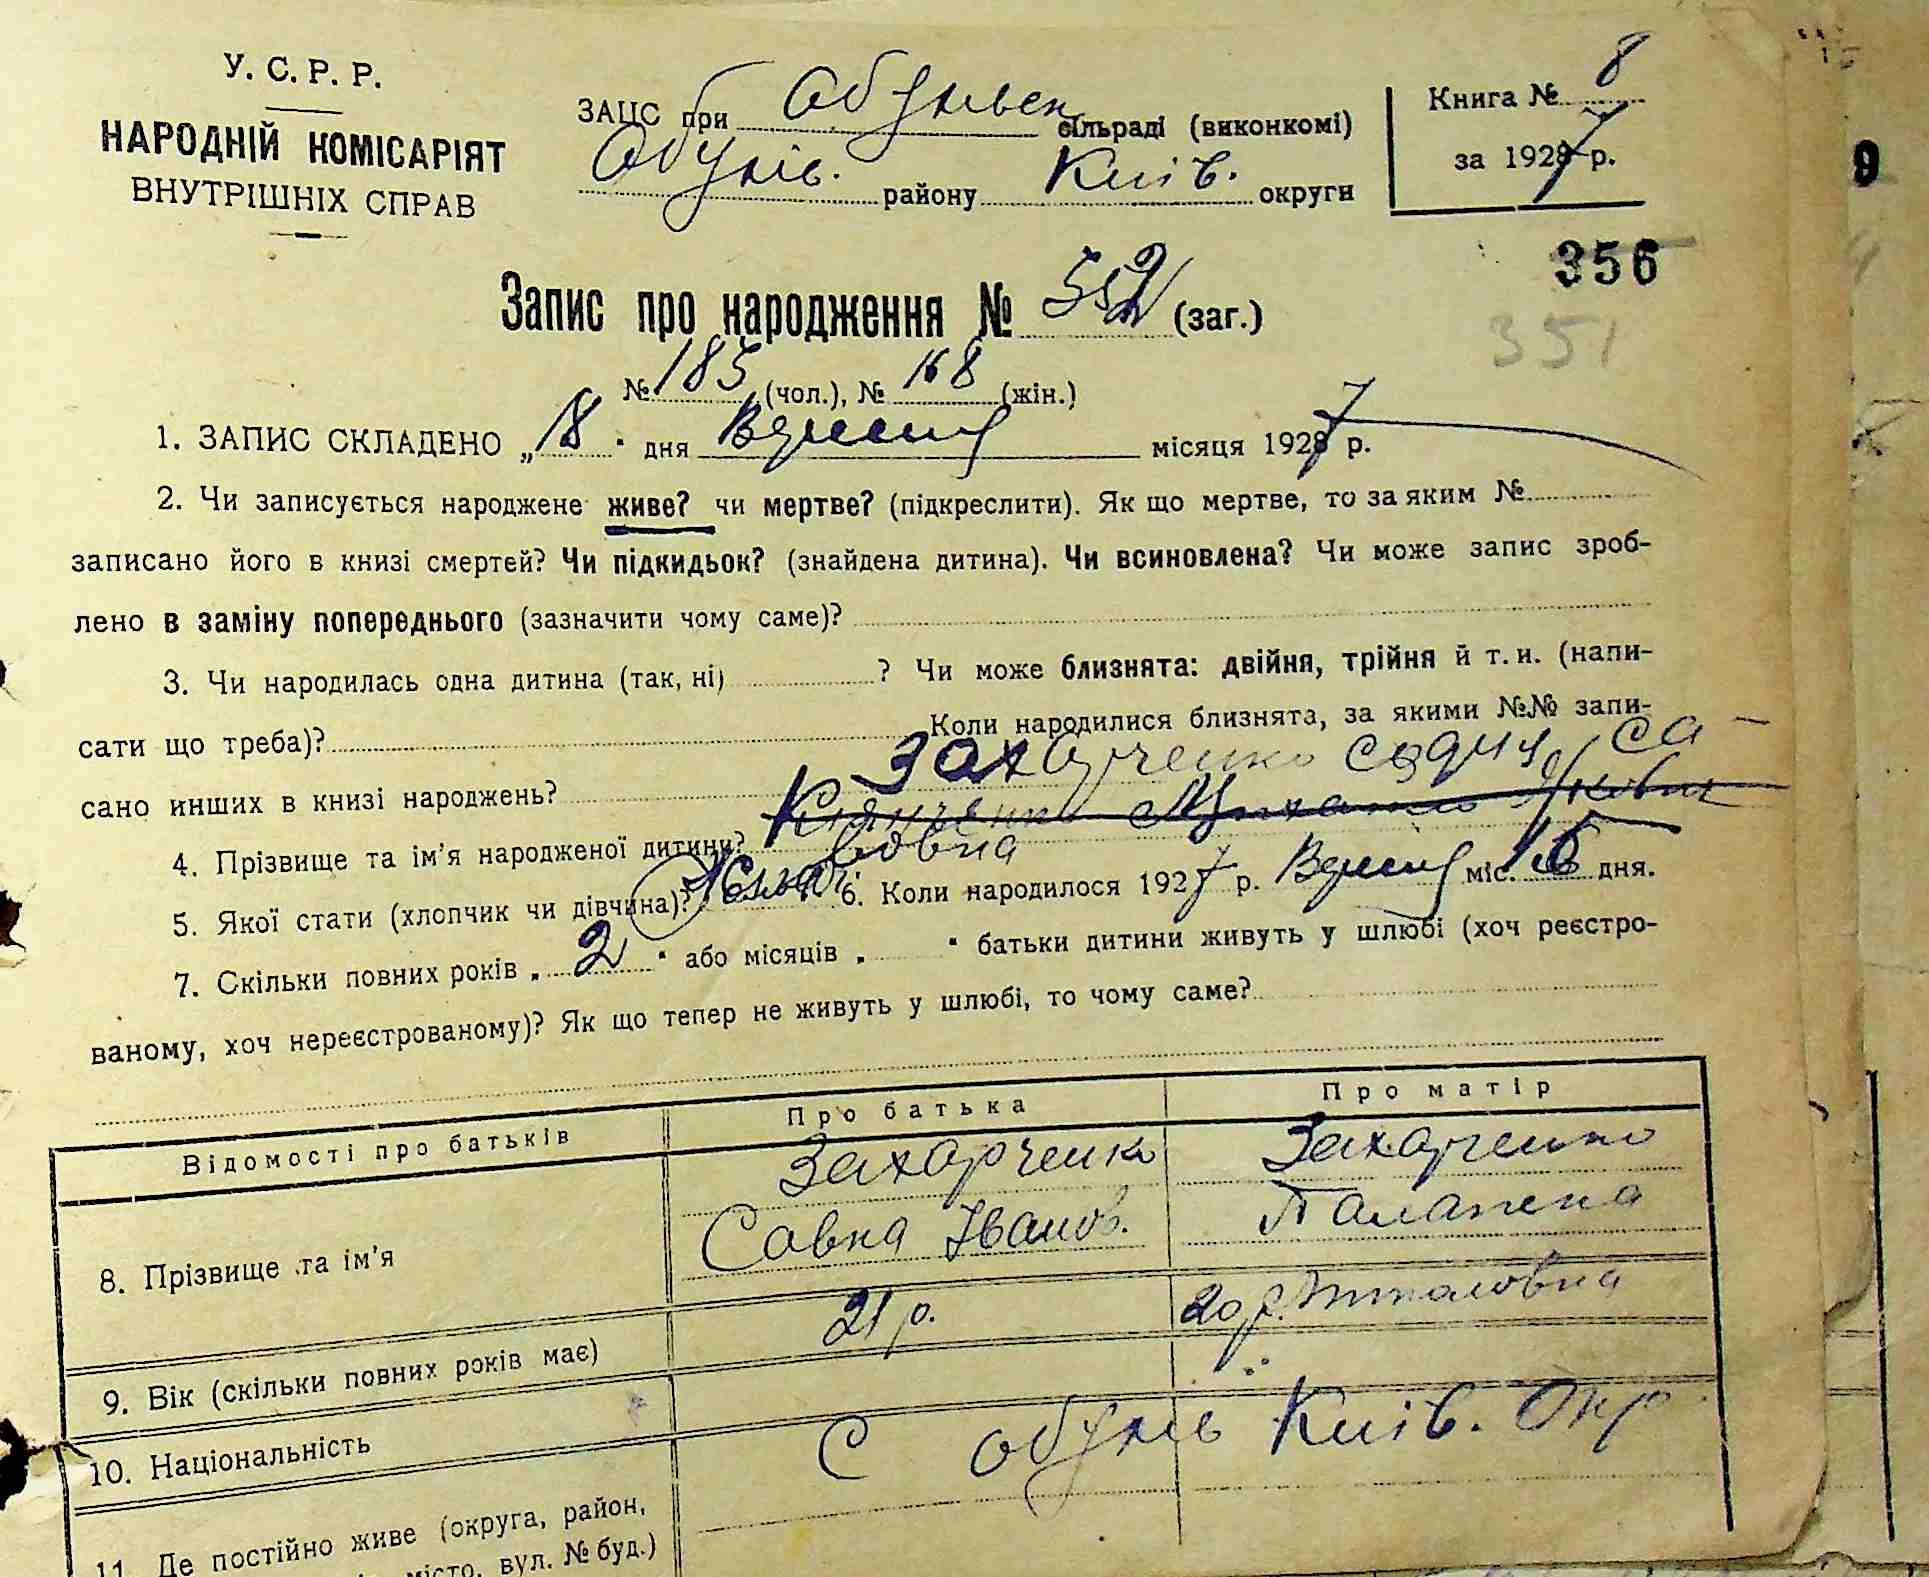 У. С. Р. Р.
НАРОДНІЙ КОМІСАРІЯТ
ВНУТРІШНІХ СПРАВ
ЗАЦС при Обухывск сільраді (виконкомі)
Обухів. району Київ. округи
Книга № 8
за 1927 р.
9
356
351
Запис про народження № 352 (заг.)
№ 185 (чол.), № 168 (жін.)
1. ЗАПИС СКЛАДЕНО „18" дня Вересня місяця 1927 р.
2. Чи записується народжене живе? чи мертве? (підкреслити). Як що мертве, то за яким №
записано його в книзі смертей? Чи підкидьок? (знайдена дитина). Чи всиновлена? Чи може запис зроб-
лено в заміну попереднього (зазначити чому саме)?
3. Чи народилась одна дитина (так, ні) ? Чи може близнята: двійня, трійня й т. и. (напи-
сати що треба)? Коли народилися близнята, за якими №№ запи-
сано инших в книзі народжень? Захарченко са-
4. Прізвище та ім'я народженої дитини? вовна
5. Якої стати (хлопчик чи дівчина)? 6. Коли народилося 1927 р. Вересня міс. 15 дня.
7. Скільки повних років „2" або місяців „ " батьки дитини живуть у шлюбі (хоч реєстро-
ваному, хоч нереєстрованому)? Як що тепер не живуть у шлюбі, то чому саме?
Відомості про батьків Про батька Про матір
Захарченко Захарченко
8. Прізвище та ім'я Совка Іванов. Палажка
9. Вік (скільки повних років має) 21 р. 20 р.
10. Національність
С Обухів Київ. Окр
11. Де постійно живе (округа, район,
місто, вул. № буд.)